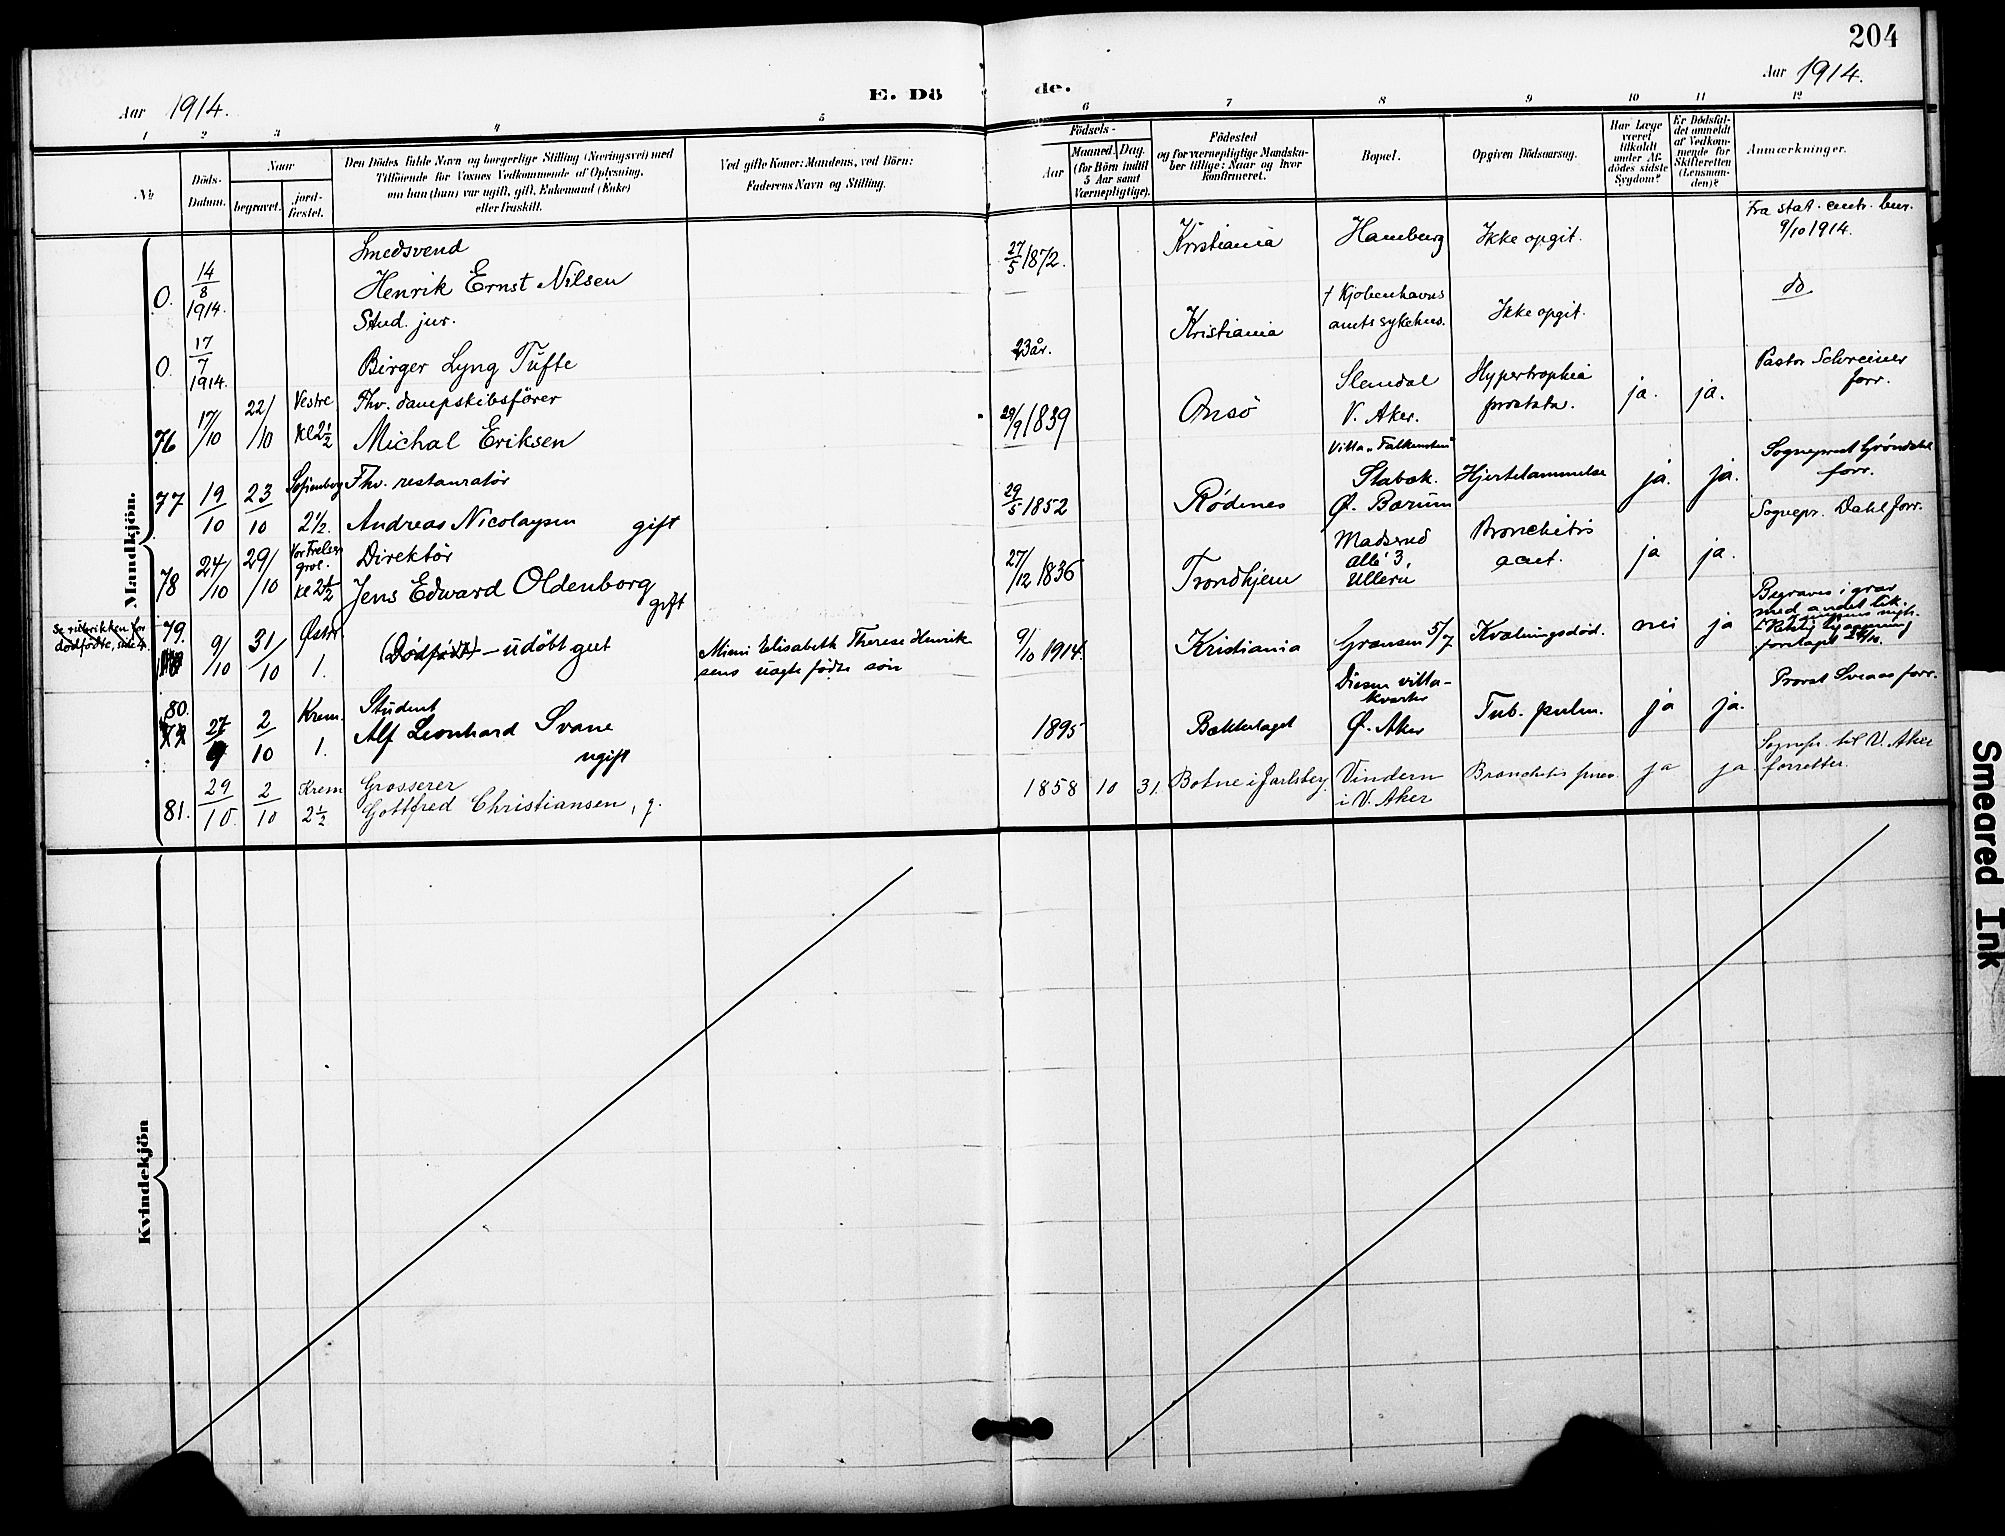 204
Aar 1914.
E. Dö
de.
Aar 1914.
1 2 3 4 5 6 7 8 9 10 11 12
No
Döds-
Datum.
Naar
begravet.
jord-
fæstet.
Den Dödes fulde Navn og borgerlige Stilling (Næringsvei) med
Tilföiende för Voxnes Vedkommende af Oplysning,
om han (hun) var ugift, gift, Enkemand (Enke)
eller fraskilt.
Ved gifte Koner: Mandens, ved Börn:
Faderens Navn og Stilling.
Födsels-
Aar
Maaned. Dag.
(for Börn indtil
5 Aar samt
Værnepligtige).
Födested
og for værnepligtige Mandska-
ber tillige: Naar og hvor
konfirmeret.
Bopæl.
Opgiven Dödsaarsag.
Har Læge
været
tilkaldt
under Af-
dödes sidste
Sygdom?
Er Dödsfal-
det anmeldt
af Vedkom-
mende for
Skifteretten
(Lensman-
den)?
Anmærkninger.
Mandkjön.
O. 14/8 1914.
Smedsvend
Henrik Ernst Nilsen
27/5 1872.
Kristiania
Hamburg
Ikke opgit.
Fra stat. centr. bur.
9/10 1914.
O. 17/7 1914.
Stud. jur.
Birger Lyng Tufte
23 år.
Kristiania
† Kjøbenhavns
amts sykehus.
Ikke opgit.
do
76 17/10 22/10 Vestre
kl 2 1/2
Fhv. dampskibsfører
Michal Eriksen
29/9 1839
Onsö
Slemdal
V. Aker.
Hypertrophia
prostata.
ja. ja.
Pastor Schreiner
forr.
77 19/10 23/10 Sofienberg
2 1/2
Fhv. restauratør
Andreas Nicolaysen gift
29/5 1852
Rödenes
Villa "Falkensten"
Stabæk.
Ø. Bærum
Hjertelammelse
ja. ja.
Sogneprest Gröndahl
forr.
78 24/10 29/10 Vor Frelsers
grav.
kl 2 1/2
Direktör
Jens Edward Oldenborg
gift
27/12 1836
Trondhjem
Madserud
allé 3,
Ullern
Bronchitis
acut.
ja ja.
Sognepr. Dahl forr.
Se rubrikken for
dødfødte, side 4.
79. 9/10 31/10 Østre
1.
(Dödfödt) – udöbt gut
Mimi Elisabeth Therese Henrik
sens uægte fødte sön
9/10 1914.
Kristiania
Grænsen 5/7
Kvælningsdöd.
nei ja
Begraves i grav
med andet lik.
80. 27/9 2/10 Krem.
1.
Student
Alf Leonhard Svane
ugift
1895
Bækkelaget
villa-
kvarter
Ø. Aker
Tub. pulm.
ja ja.
Provst Sveaas forr.
81. 29/10. 2/10 Krem
2 1/2
Grosserer
Gottfred Christiansen, g.
1858 10 31.
Botne i Jarlsberg.
Vindern
i V. Aker
Bronchitis
ja ja
Sognepr. til V. Aker
forretter.
Kvindekjön
Smeared Ink